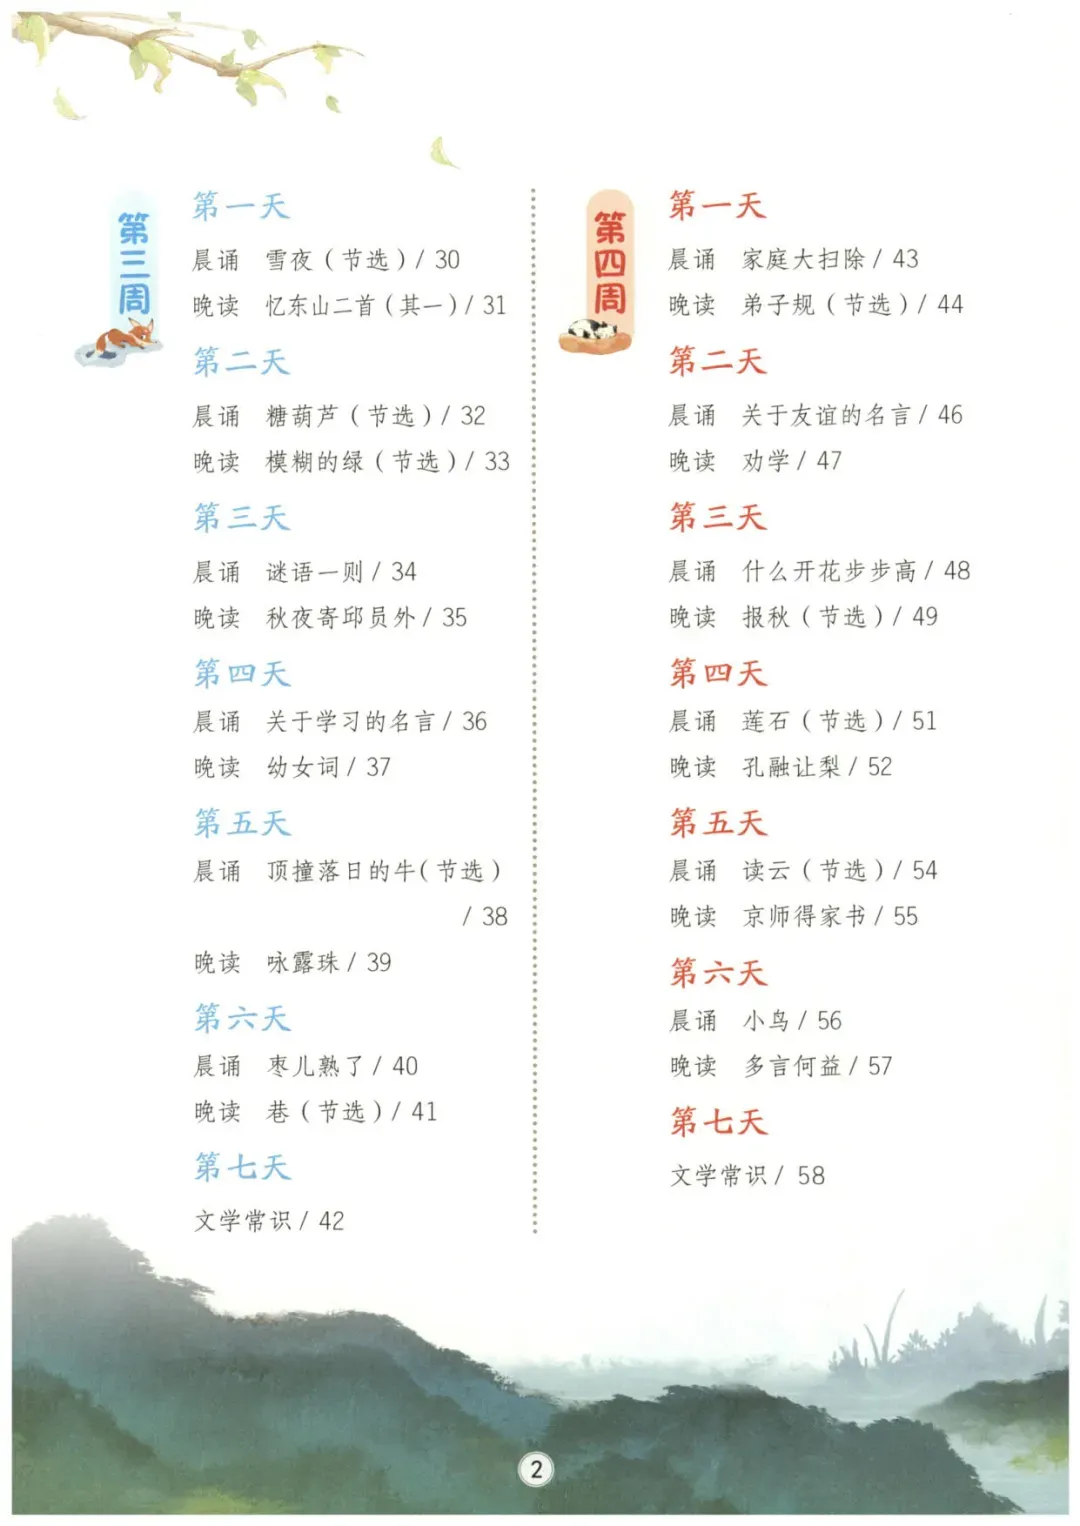 第三周
第一天
晨诵 雪夜（节选）/ 30
晚读 忆东山二首（其一）/ 31
第二天
晨诵 糖葫芦（节选）/ 32
晚读 模糊的绿（节选）/ 33
第三天
晨诵 谜语一则 / 34
晚读 秋夜寄邱员外 / 35
第四天
晨诵 关于学习的名言 / 36
晚读 幼女词 / 37
第五天
晨诵 顶撞落日的牛（节选）
/ 38
晚读 咏露珠 / 39
第六天
晨诵 枣儿熟了 / 40
晚读 巷（节选）/ 41
第七天
文学常识 / 42
第四周
第一天
晨诵 家庭大扫除 / 43
晚读 弟子规（节选）/ 44
第二天
晨诵 关于友谊的名言 / 46
晚读 劝学 / 47
第三天
晨诵 什么开花步步高 / 48
晚读 报秋（节选）/ 49
第四天
晨诵 莲石（节选）/ 51
晚读 孔融让梨 / 52
第五天
晨诵 读云（节选）/ 54
晚读 京师得家书 / 55
第六天
晨诵 小鸟 / 56
晚读 多言何益 / 57
第七天
文学常识 / 58
2